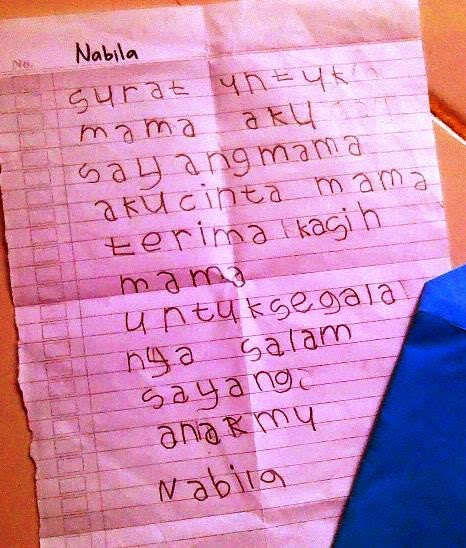 Nabila
No.
surat untuk
mama aku
sayangmama
akucinta mama
terima kasih
mama
untuksegala
nya salam
sayang
anakmu
Nabila